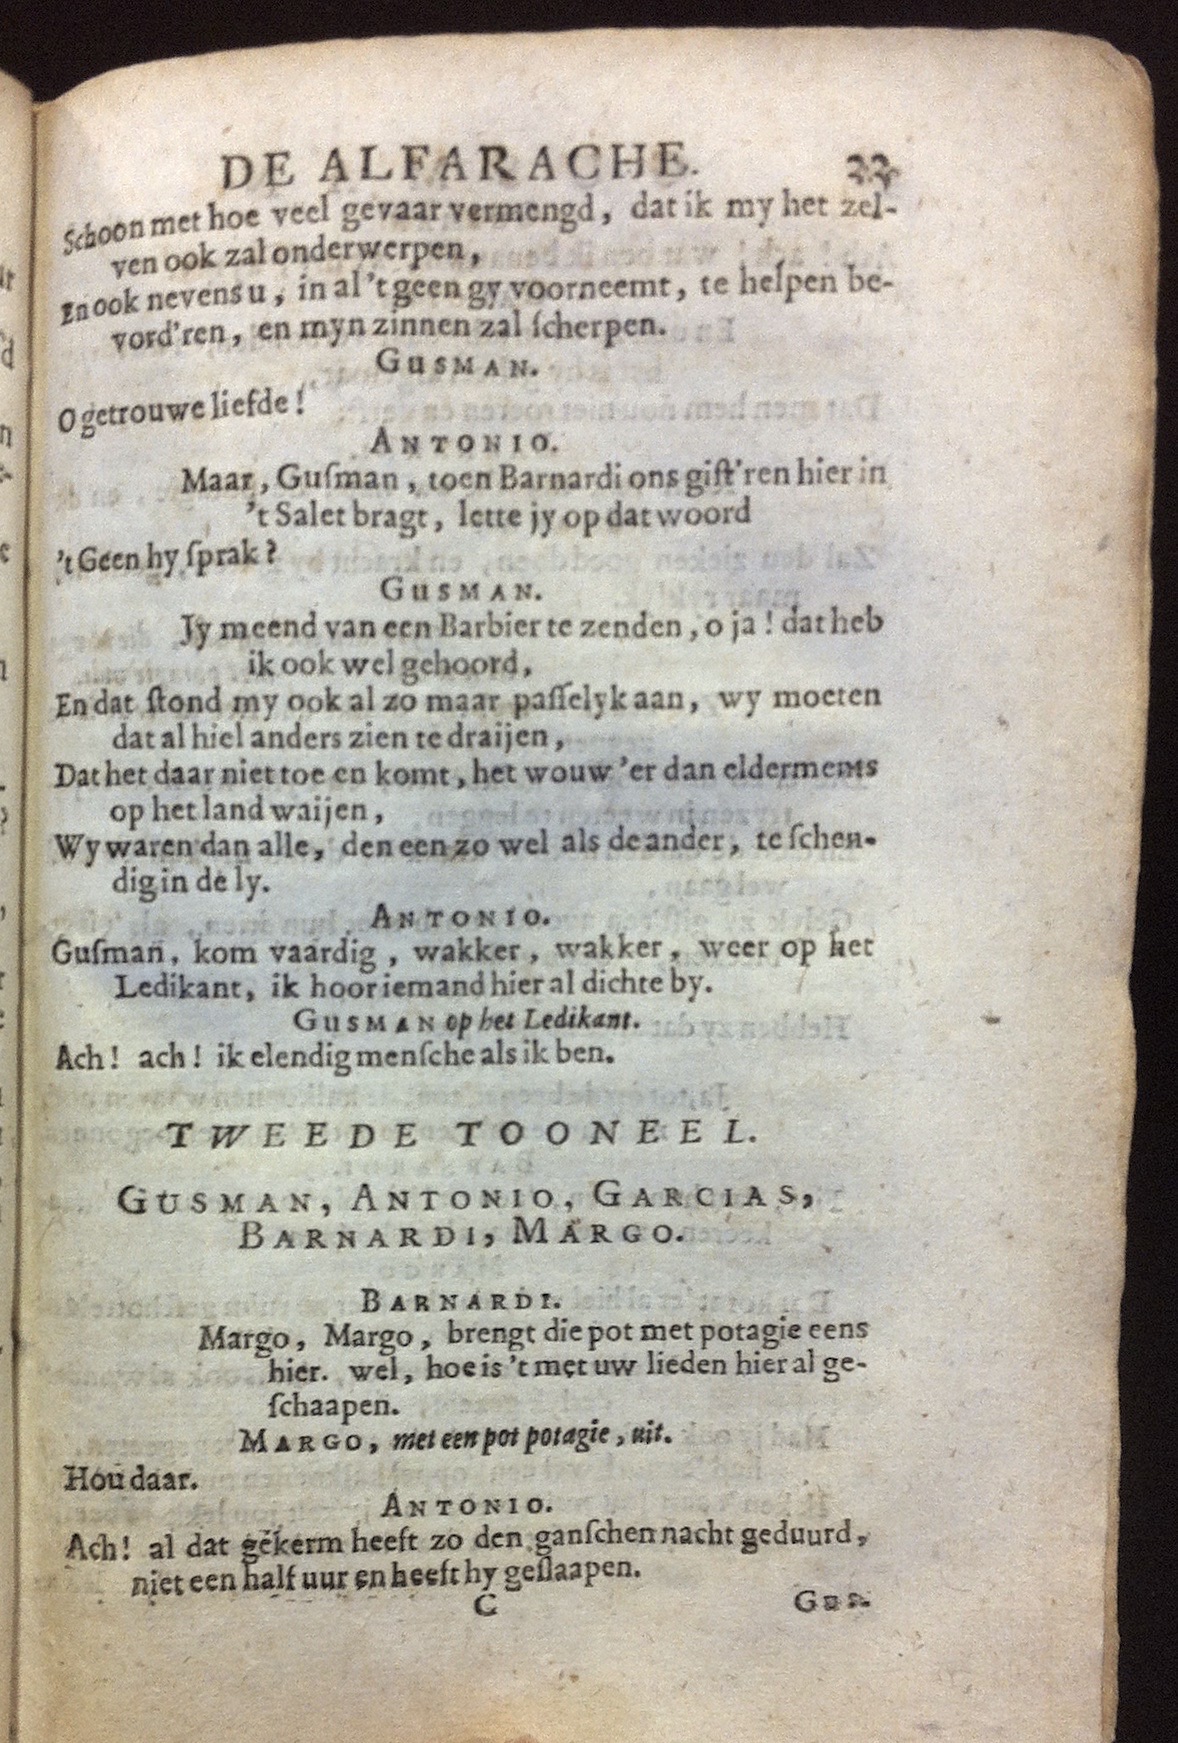 DE ALFARACHE. 33
Schoon met hoe veel gevaar vermengd, dat ik my het zel-
ven ook zal onderwerpen,
En ook nevens u, in al 't geen gy voorneemt, te helpen be-
vord'ren, en myn zinnen zal ſcherpen.
GUSMAN.
O getrouwe liefde!
ANTONIO.
Maar, Guſman, toen Barnardi ons giſt'ren hier in
't Salet bragt, lette jy op dat woord
't Geen hy ſprak?
GUSMAN.
Jy meend van een Barbier te zenden, o ja! dat heb
ik ook wel gehoord,
En dat ſtond my ook al zo maar paſſelyk aan, wy moeten
dat al hiel anders zien te draijen,
Dat het daar niet toe en komt, het wouw 'er dan elderments
op het land waijen,
Wy waren dan alle, den een zo wel als de ander, te ſchen-
dig in de ly.
ANTONIO.
Guſman, kom vaardig, wakker, wakker, weer op het
Ledikant, ik hoor iemand hier al dichte by.
GUSMAN op het Ledikant.
Ach! ach! ik elendig menſche als ik ben.
TWEEDE TOONEEL.
GUSMAN, ANTONIO, GARCIAS,
BARNARDI, MARGO.
BARNARDI.
Margo, Margo, brengt die pot met potagie eens
hier. wel, hoe is 't met uw lieden hier al ge-
ſchaapen.
MARGO, met een pot potagie, uit.
Hou daar.
ANTONIO.
Ach! al dat gekerm heeft zo den ganſchen nacht geduurd,
niet een half uur en heeft hy geſlaapen.
C GUS-